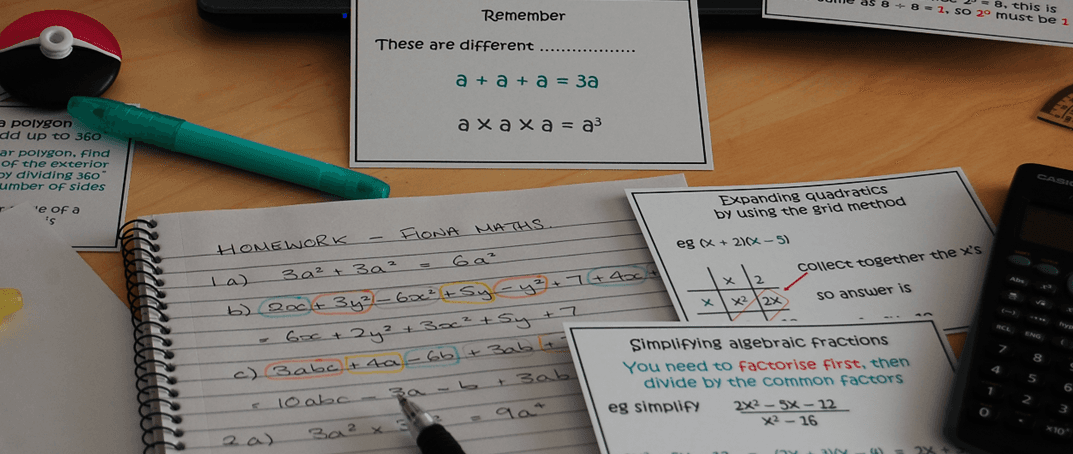 Remember
These are different ..................
a + a + a = 3a
a x a x a = a³
= 8, this is
as 8 ÷ 8 = 1, so 2⁰ must be 1
a polygon
add up to 360°
polygon, find
of the exterior
by dividing 360°
number of sides
of a
HOMEWORK – FIONA MATHS.
1 a) 3a² + 3a² = 6a²
b) 2x + 3y² – 6x² + 5y – y² + 7 + 4x +
= 6x + 2y² + 3x² + 5y + 7
c) 3abc + 4a – 6b + 3ab +
= 10abc – 3a – b + 3ab
2 a) 3a² x = 9a⁴
Expanding quadratics
by using the grid method
eg (x + 2)(x – 5)
x 2
x x² 2x
collect together the x's
so answer is
Simplifying algebraic fractions
You need to factorise first, then
divide by the common factors
eg simplify 2x² – 5x – 12
x² – 16
CASIO
7 8
4 5 6
1 2 3
0 . x10